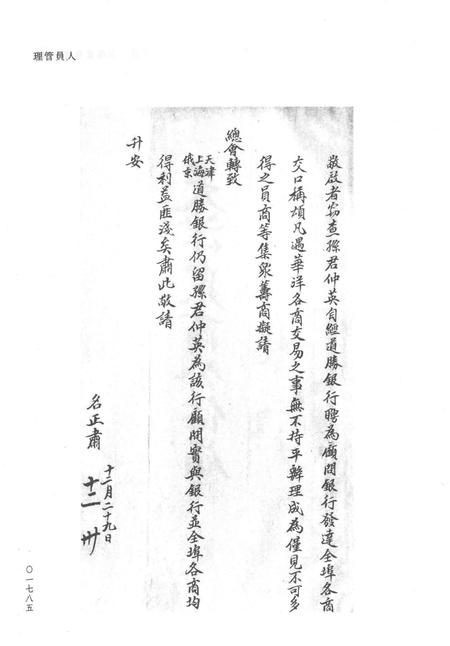 人員管理
敬啟者茲查孫君仲英自經道勝銀行聘為顧問銀行發達全埠各商
交口稱頌凡遇華洋各商交易之事無不持平辦理成為僅見不可多
得之員商等集眾籌商擬請
總會轉致
天津
上海
俄京
道勝銀行仍留孫君仲英為該行顧問實與銀行並全埠各商均
得利益匪淺矣肅此敬請
升安
名正肅
十一月二十九日
十二 卅
〇一七八五